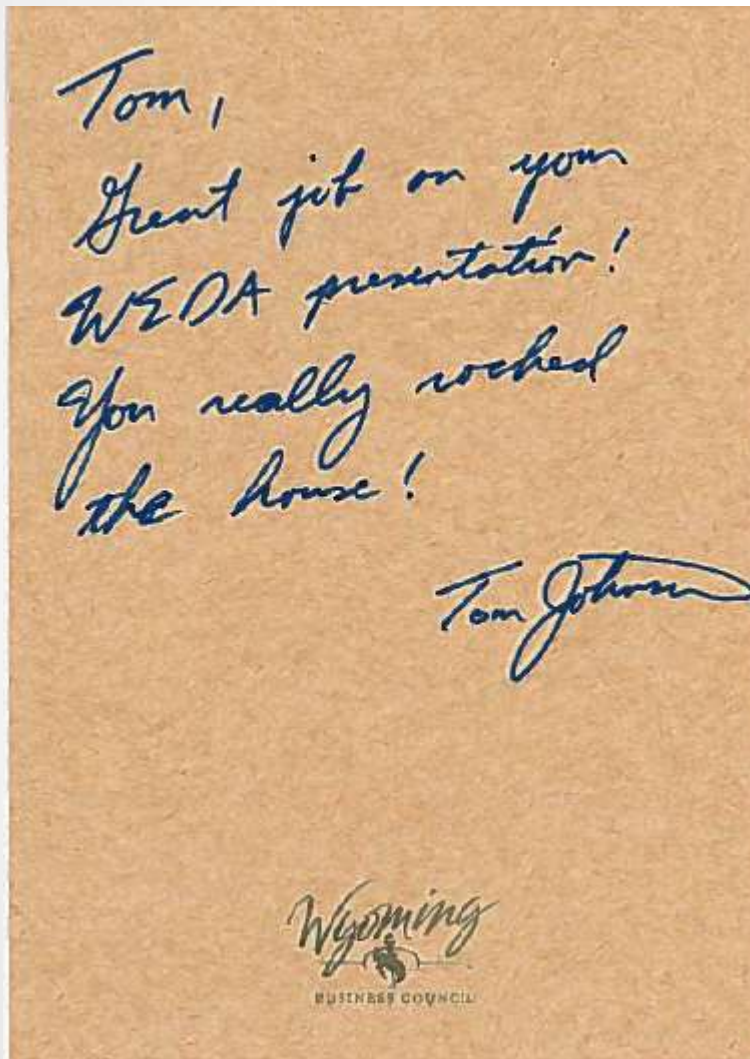 Tom,
Great job on your
WEDA presentation!
You really rocked
the house!
Tom Johnson
Wyoming
BUSINESS COUNCIL